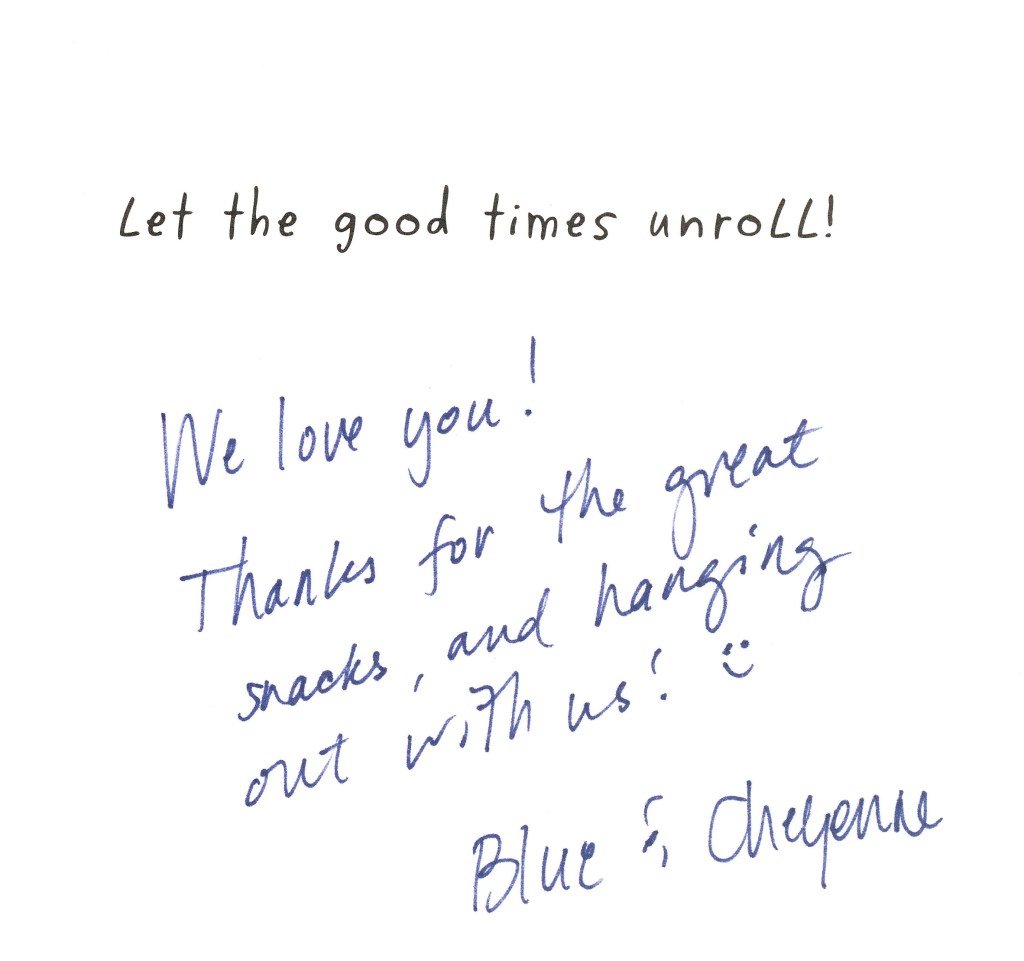 Let the good times unroll!
We love you!
Thanks for the great
snacks, and hanging
out with us! :)
Blue & Cheyenne